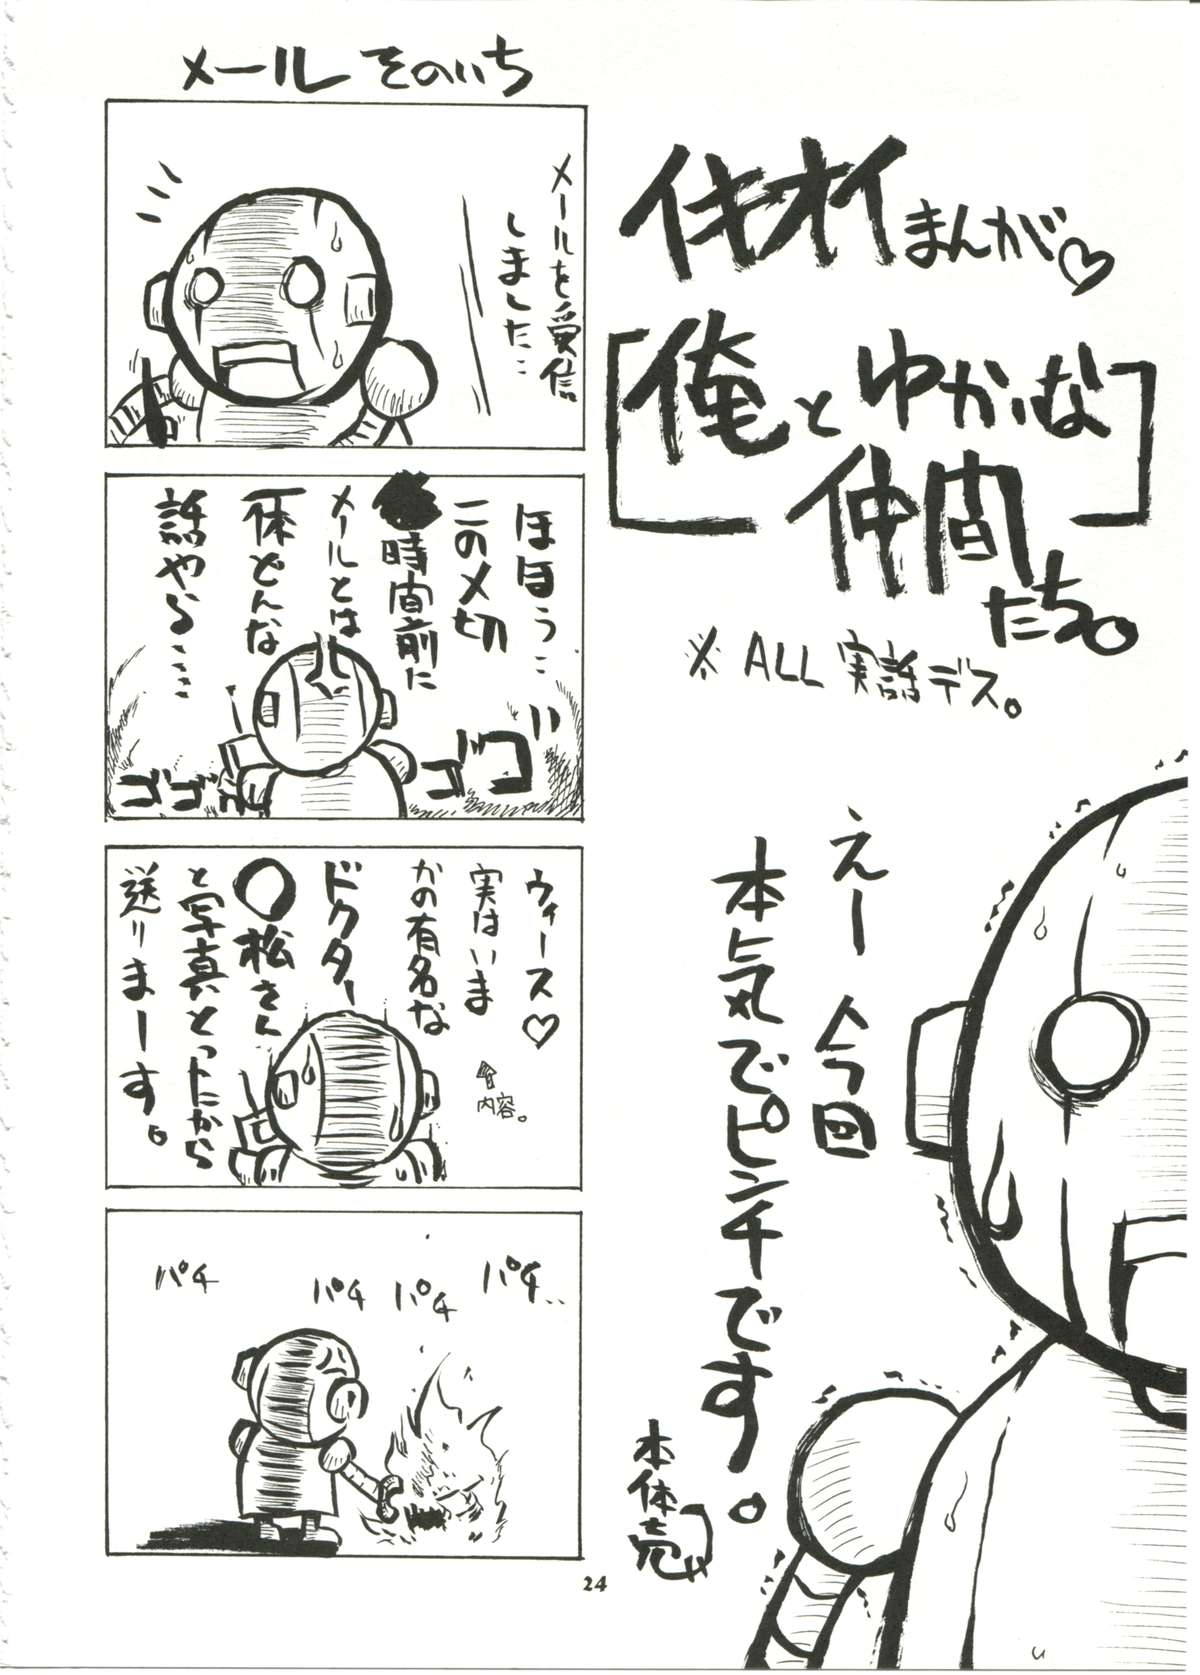 イキオイまんが♡
「俺とゆかいな
仲間たち。」
※ALL実話デス。
えー今回
本気でピンチです。
メールそのいち
メールを受信
しました‥
ほほう‥
この〆切
●時間前に
メールとは
一体どんな
話やら‥‥
ゴゴゴゴゴ
ウィース♡
実はいま
かの有名な
ドクター
○松さん
と写真とったから
送りまーす。
↑内容。
パチ
パチ
パチ
パチ‥
24